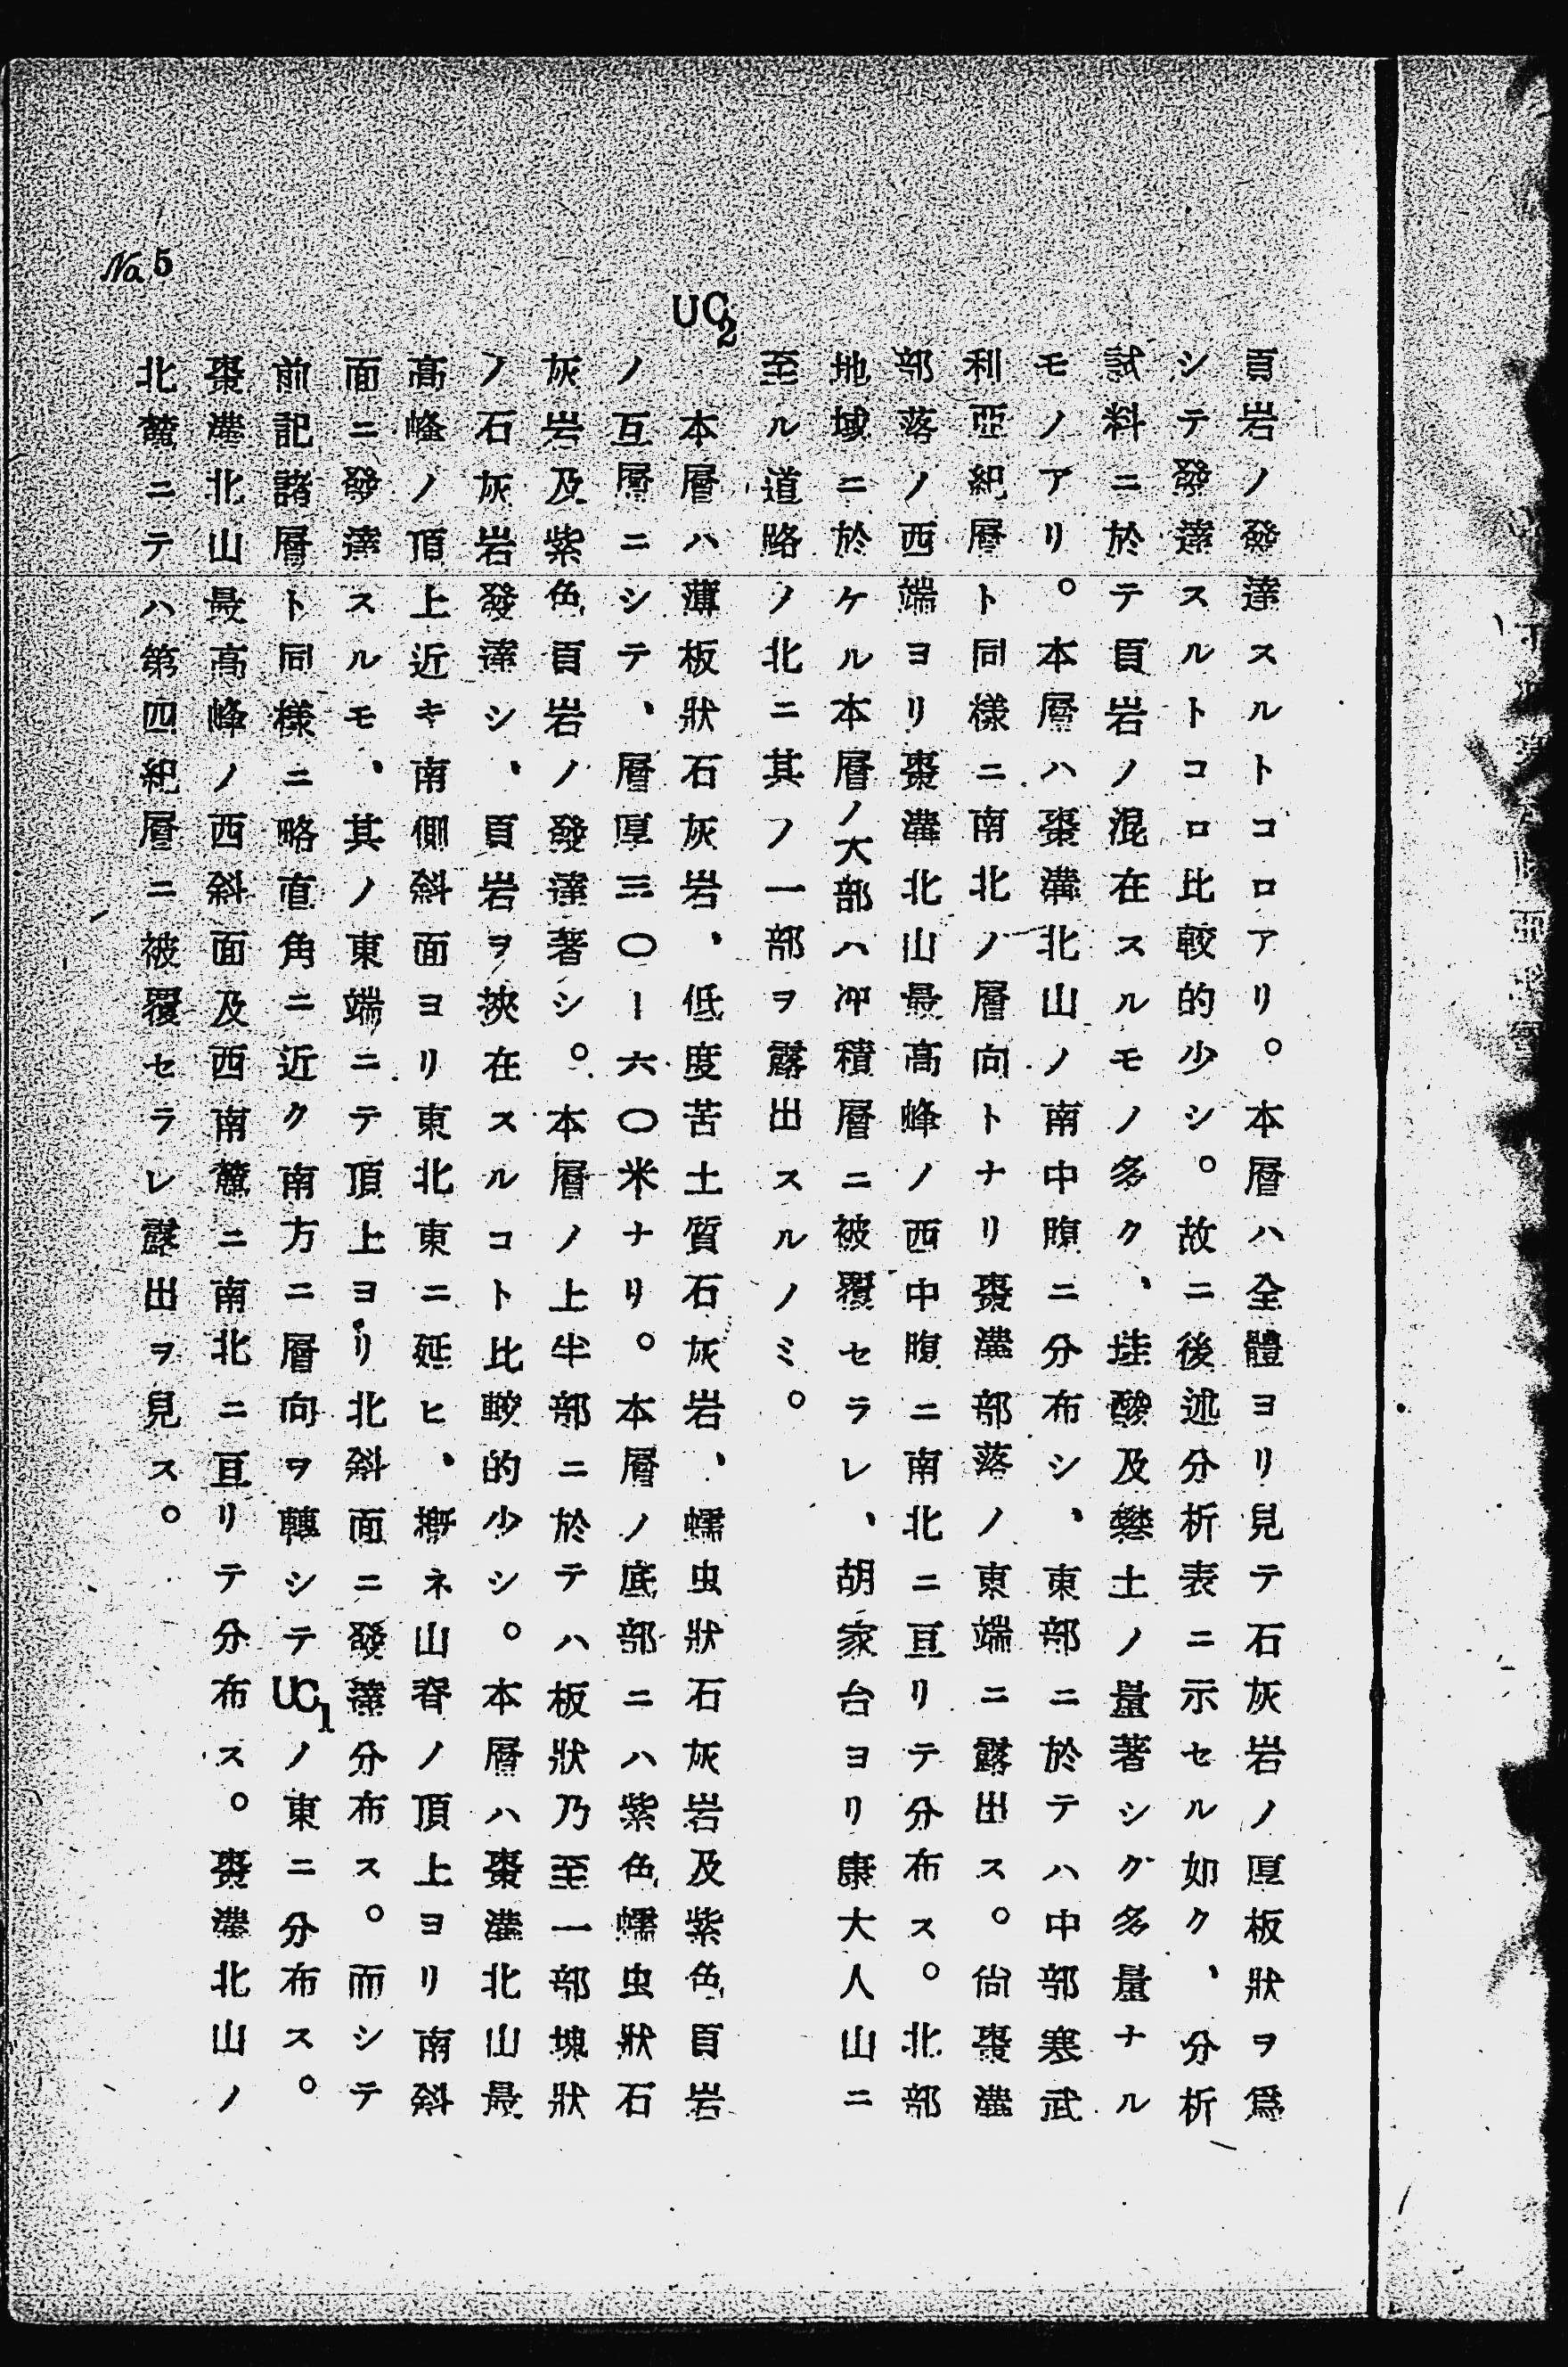 頁岩ノ發達スルトコロアリ。本層ハ全體ヨリ見テ石灰岩ノ厚板狀ヲ爲
シテ發達スルトコロ比較的少シ。故ニ後述分析表ニ示セル如ク、分析
試料ニ於テ頁岩ノ混在スルモノ多ク、珪酸及礬土ノ量著シグ多量ナル
モノアリ。本層ハ棗溝北山ノ南中腹ニ分布シ、東部ニ於テハ中部寒武
利亞紀層ト同様ニ南北ノ層向トナリ棗溝部落ノ東端ニ露出ス。尙棗溝
部落ノ西端ヨリ棗溝北山最高峰ノ西中腹ニ南北ニ亘リテ分布ス。北部
地域ニ於ケル本層ノ大部ハ冲積層ニ被覆セラレ、胡家台ヨリ康大人山ニ
至ル道路ノ北ニ其ノ一部ヲ露出スルノミ。
UC2
本層ハ薄板狀石灰岩、低度苦土質石灰岩、蠕虫狀石灰岩及紫色頁岩
ノ互層ニシテ、層厚三〇ー六〇米ナリ。本層ノ底部ニハ紫色蠕虫狀石
灰岩及紫色頁岩ノ發達著シ。本層ノ上半部ニ於テハ板狀乃至一部塊狀
ノ石灰岩發達シ、頁岩ヲ挾在スルコト比較的少シ。本層ハ棗溝北山最
高峰ノ頂上近キ南側斜面ヨリ東北東ニ延ヒ、槪ネ山脊ノ頂上ヨリ南斜
面ニ發達スルモ、其ノ東端ニテ頂上ヨリ北斜面ニ發達分布ス。而シテ
前記諸層ト同様ニ略直角ニ近ク南方ニ層向ヲ轉シテUC1ノ東ニ分布ス。
棗溝北山最高峰ノ西斜面及西南麓ニ南北ニ亘リテ分布ス。棗溝北山ノ
北麓ニテハ第四紀層ニ被覆セラレ露出ヲ見ス。
No. 5